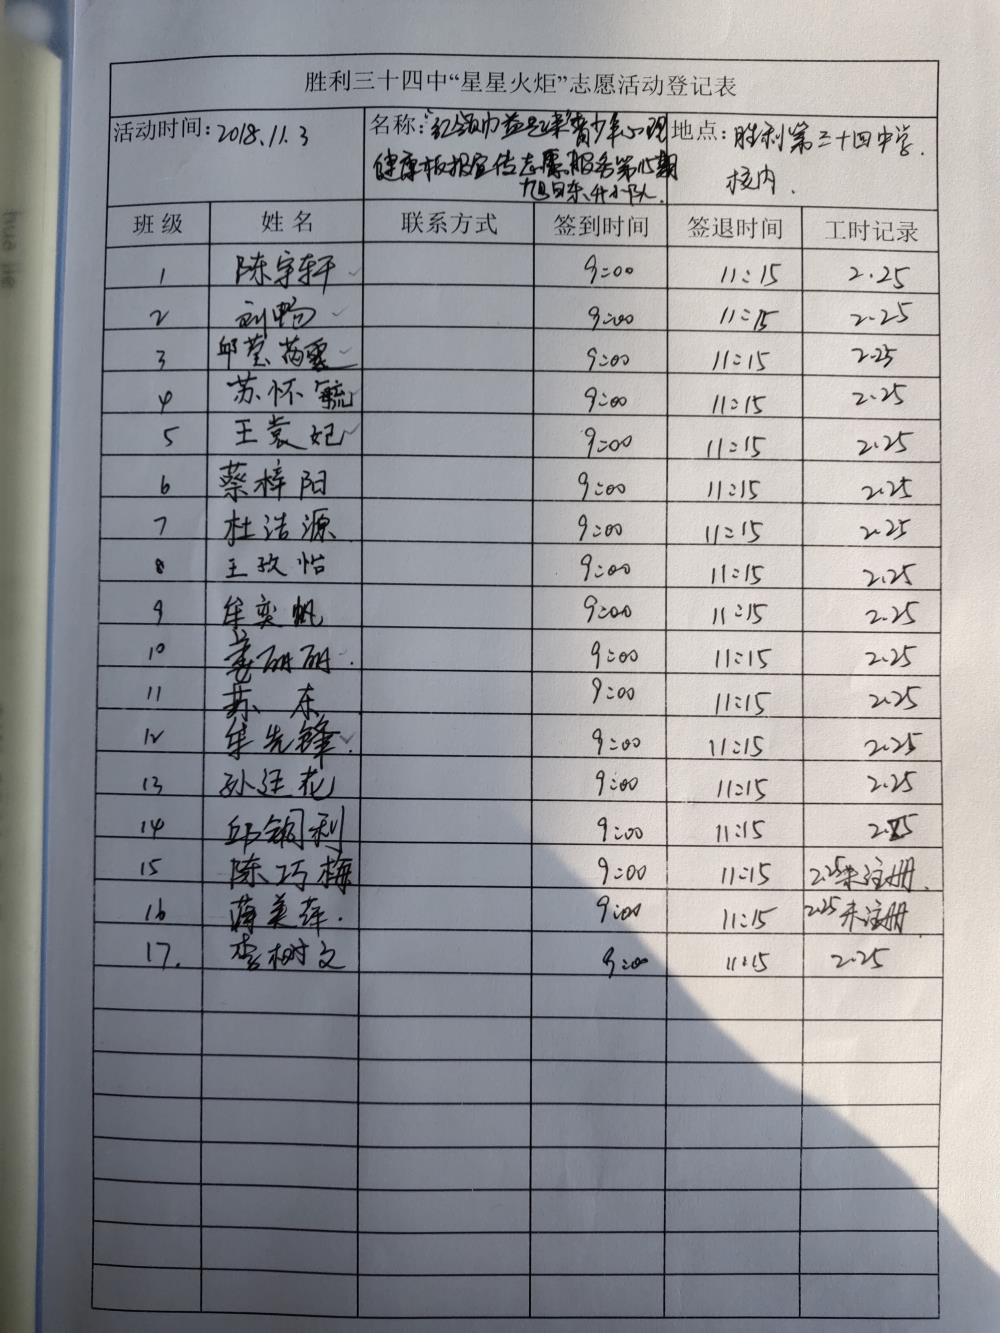 胜利三十四中“星星火炬”志愿活动登记表
活动时间: 2018.11.3 名称: “红领巾益起来”青少年心理 地点: 胜利第三十四中学
健康板报宣传志愿服务第 期 校内.
旭日东升小队
班级 姓名 联系方式 签到时间 签退时间 工时记录
1 陈宇轩 9:00 11:15 2.25
2 刘畅 9:00 11:15 2.25
3 邱莹 9:00 11:15 2.25
4 苏怀毓 9:00 11:15 2.25
5 王袁妃 9:00 11:15 2.25
6 蔡梓阳 9:00 11:15 2.25
7 杜浩源 9:00 11:15 2.25
8 王孜怡 9:00 11:15 2.25
9 牟奕帆 9:00 11:15 2.25
10 丽丽. 9:00 11:15 2.25
11 苏东 9:00 11:15 2.25
12 牟先锋. 9:00 11:15 2.25
13 孙 花 9:00 11:15 2.25
14 邱 利 9:00 11:15 2.25
15 陈巧梅 9:00 11:15 2.25未注册.
16 蒋美萍. 9:00 11:15 2.25未注册
17. 李树文 9:00 11:15 2.25